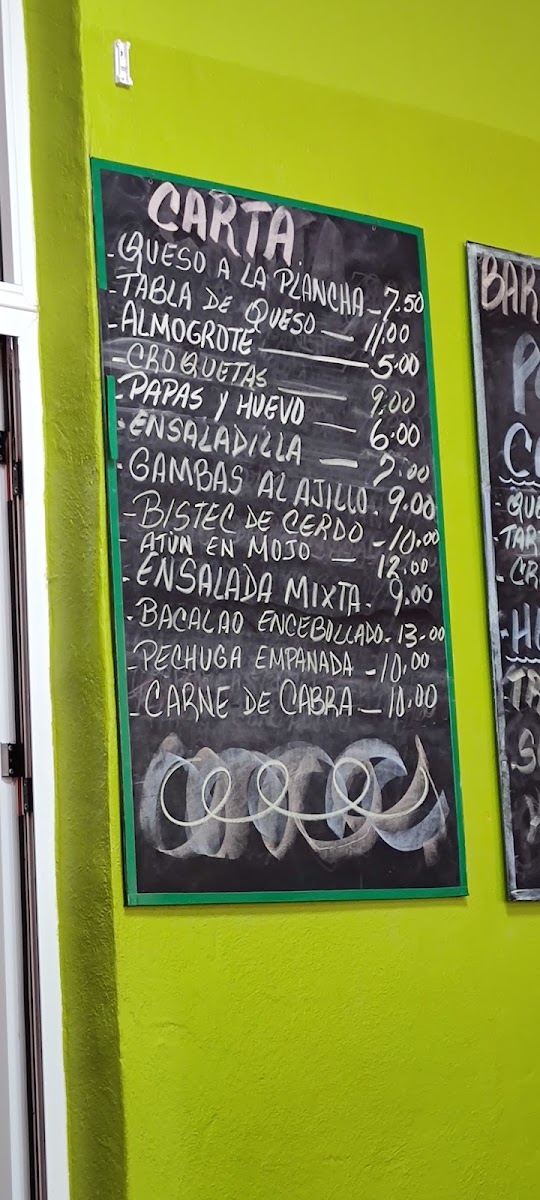 CARTA.
-QUESO A LA PLANCHA-7.50
-TABLA DE QUESO — 11,00
-ALMOGROTE — 5.00
-CROQUETAS — 9.00
-PAPAS Y HUEVO — 6.00
-ENSALADILLA — 7.00
-GAMBAS AL AJILLO. 9.00
-BISTEC DE CERDO -10.00
-ATÚN EN MOJO — 12.00
-ENSALADA MIXTA. 9.00
-BACALAO ENCEBOLLADO-13.00
-PECHUGA EMPANADA -10,00
-CARNE DE CABRA — 10,00
BAR